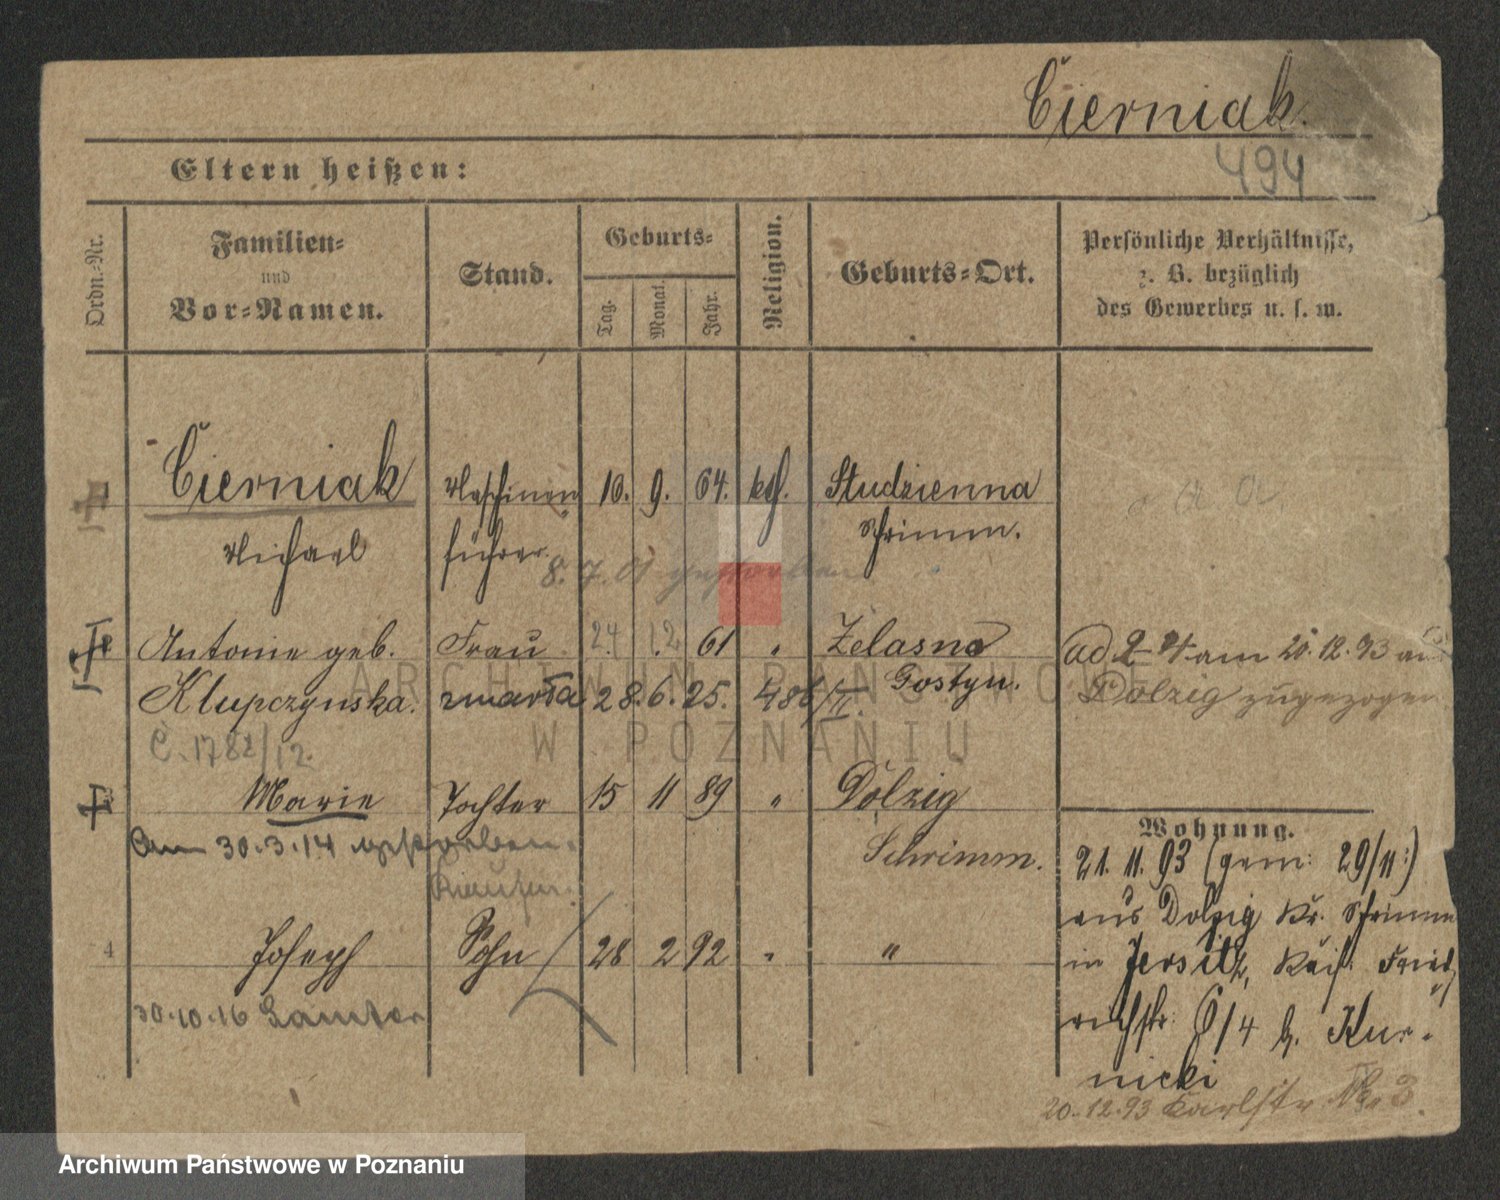 Cierniak.
494
Eltern heißen:
Ordn.-Nr.
Familien-
und
Vor-Namen.
Stand.
Geburts-
Tag.
Monat.
Jahr.
Religion.
Geburts-Ort.
Persönliche Verhältnisse,
z. B. bezüglich
des Gewerbes u. s. w.
Cierniak Maschinen 10. 9. 64. kth. Studzienna
Michael führer. Schrimm.
8. 7. 01 gestorben
Antonie geb. Frau 24. 12. 61 " Zelasno
Klupczynska. zmarła 28. 6. 25. 486/II. Gostyn.
ad 2-4 am 20.12.93 aus
Dolzig zugezogen
C. 1782/12.
Marie Tochter 15 11 89 " Dolzig
Am 30.3.14 gestorben. Schrimm.
4 Joseph Sohn 28 2 92 " "
30.10.16 Samter
Wohnung.
21. 11. 93 (gem: 29/11:)
aus Dolzig Kr. Schrimm
in Jersitz, Kais. Fried
richstr. 6/4 b. Kur-
nicki
20.12.93 Karlstr No. 3.
ARCHIWUM PAŃSTWOWE
W POZNANIU
Archiwum Państwowe w Poznaniu